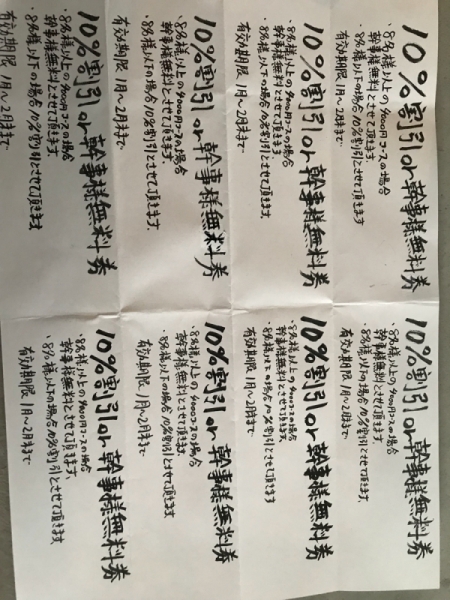 10%割引or幹事様無料券
・8名様以上の4000円コースの場合
幹事様無料とさせて頂きます。
・8名様以下の場合10%割引とさせて頂きます。
有効期限 1月〜2月末まで
10%割引or幹事様無料券
・8名様以上の4000円コースの場合
幹事様無料とさせて頂きます。
・8名様以下の場合10%割引とさせて頂きます。
有効期限 1月〜2月末まで
10%割引or幹事様無料券
・8名様以上の4000円コースの場合
幹事様無料とさせて頂きます。
・8名様以下の場合10%割引とさせて頂きます。
有効期限 1月〜2月末まで
10%割引or幹事様無料券
・8名様以上の4000円コースの場合
幹事様無料とさせて頂きます。
・8名様以下の場合10%割引とさせて頂きます
有効期限 1月〜2月末まで
10%割引or幹事様無料券
・8名様以上の4000円コースの場合
幹事様無料とさせて頂きます。
・8名様以下の場合10%割引とさせて頂きます。
有効期限 1月〜2月末まで。
10%割引or幹事様無料券
・8名様以上の4000円コースの場合
幹事様無料とさせて頂きます。
・8名様以下の場合10%割引とさせて頂きます。
有効期限 1月〜2月末まで
10%割引or幹事様無料券
・8名様以上の4000円コースの場合
幹事様無料とさせて頂きます。
・8名様以下の場合10%割引とさせて頂きます。
有効期限 1月〜2月末まで
10%割引or幹事様無料券
・8名様以上の4000円コースの場合
幹事様無料とさせて頂きます。
・8名様以下の場合10%割引とさせて頂きます
有効期限 1月〜2月末まで